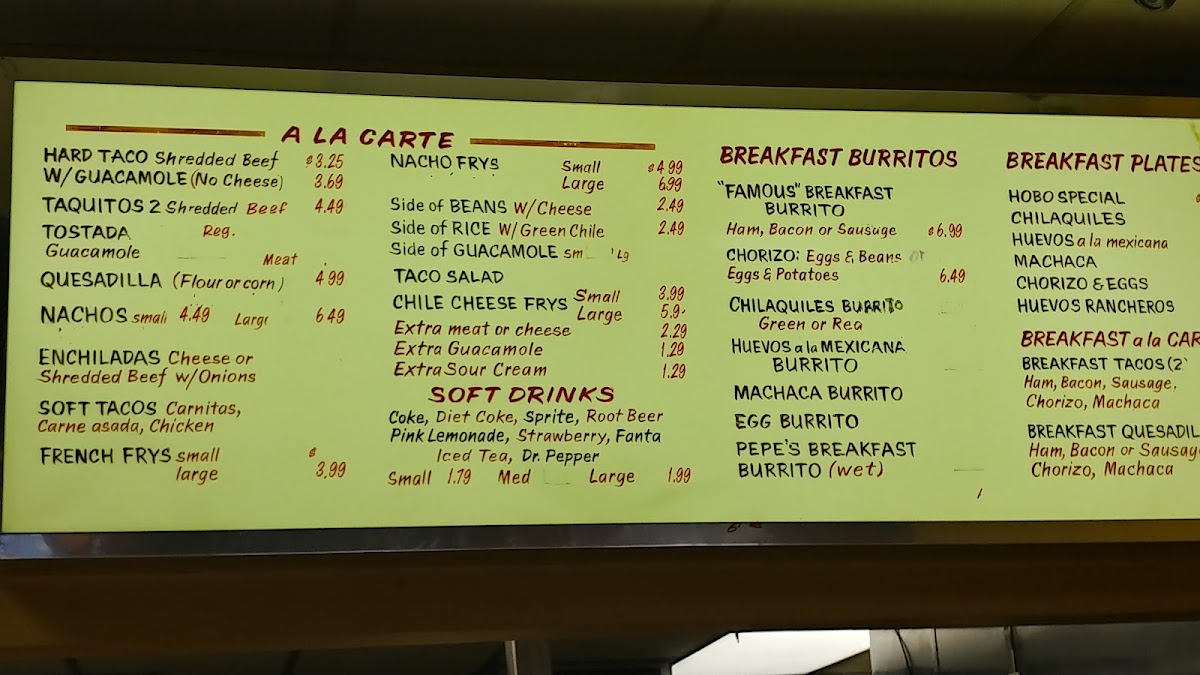 A LA CARTE
HARD TACO Shredded Beef $3.25
W/GUACAMOLE (No Cheese) 3.69
TAQUITOS 2 Shredded Beef 4.49
TOSTADA Reg.
Guacamole Meat
QUESADILLA (Flour or corn) 4 99
NACHOS small 4.49 Large 6 49
ENCHILADAS Cheese or
Shredded Beef w/Onions
SOFT TACOS Carnitas,
Carne asada, Chicken
FRENCH FRYS small $
large 3,99
NACHO FRYS Small $4 99
Large 6.99
Side of BEANS W/Cheese 2.49
Side of RICE W/Green Chile 2.49
Side of GUACAMOLE sm Lg
TACO SALAD
CHILE CHEESE FRYS Small 3.99
Large 5.9
Extra meat or cheese 2.29
Extra Guacamole 1.29
Extra Sour Cream 1.29
SOFT DRINKS
Coke, Diet Coke, Sprite, Root Beer
Pink Lemonade, Strawberry, Fanta
Iced Tea, Dr. Pepper
Small 1.79 Med Large 1.99
BREAKFAST BURRITOS
"FAMOUS" BREAKFAST
BURRITO
Ham, Bacon or Sausage $6.99
CHORIZO: Eggs & Beans or
Eggs & Potatoes 6.49
CHILAQUILES BURRITO
Green or Red
HUEVOS a la MEXICANA
BURRITO
MACHACA BURRITO
EGG BURRITO
PEPE'S BREAKFAST
BURRITO (wet)
BREAKFAST PLATES
HOBO SPECIAL
CHILAQUILES
HUEVOS a la mexicana
MACHACA
CHORIZO & EGGS
HUEVOS RANCHEROS
BREAKFAST a la CAR
BREAKFAST TACOS (2)
Ham, Bacon, Sausage,
Chorizo, Machaca
BREAKFAST QUESADIL
Ham, Bacon or Sausag
Chorizo, Machaca